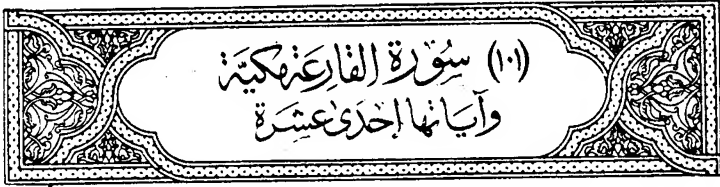 (١٠١) سُورَة القَارِعَة مَكيَّة
وَآيَاتهَا إحْدَىٰ عَشِرَة